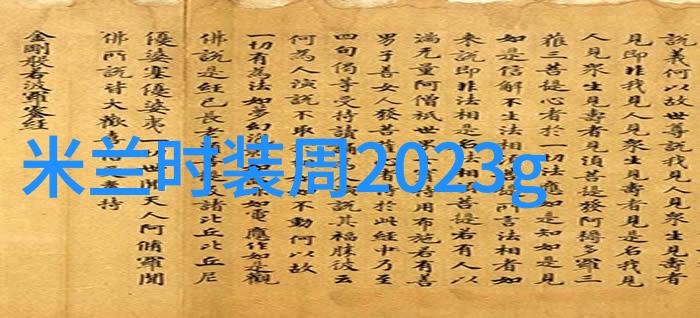 說義何以故世尊說我見人見眾生見壽者
見即非我見人見眾生見壽者見是名我見
人見眾生見壽者見須菩提發阿耨多羅三
菩提心者於一切法應如是知如是見
如是信解不生法相須菩提所言法相者如
來說即非法相是名菩提若有人以
滿无量阿僧祇世界持用布施若有善
男子善女人發菩薩於此經乃至
四句偈等受持讀誦說其福勝彼云
何為人演說不取不動何以故
一切有為法如夢幻如電應作如是觀
佛說是經已長老及諸比丘比丘尼
優婆塞優婆夷一世間天人阿脩羅聞
佛所說皆大歡喜信奉持
金剛般若波羅蜜經
米兰时装周2023g